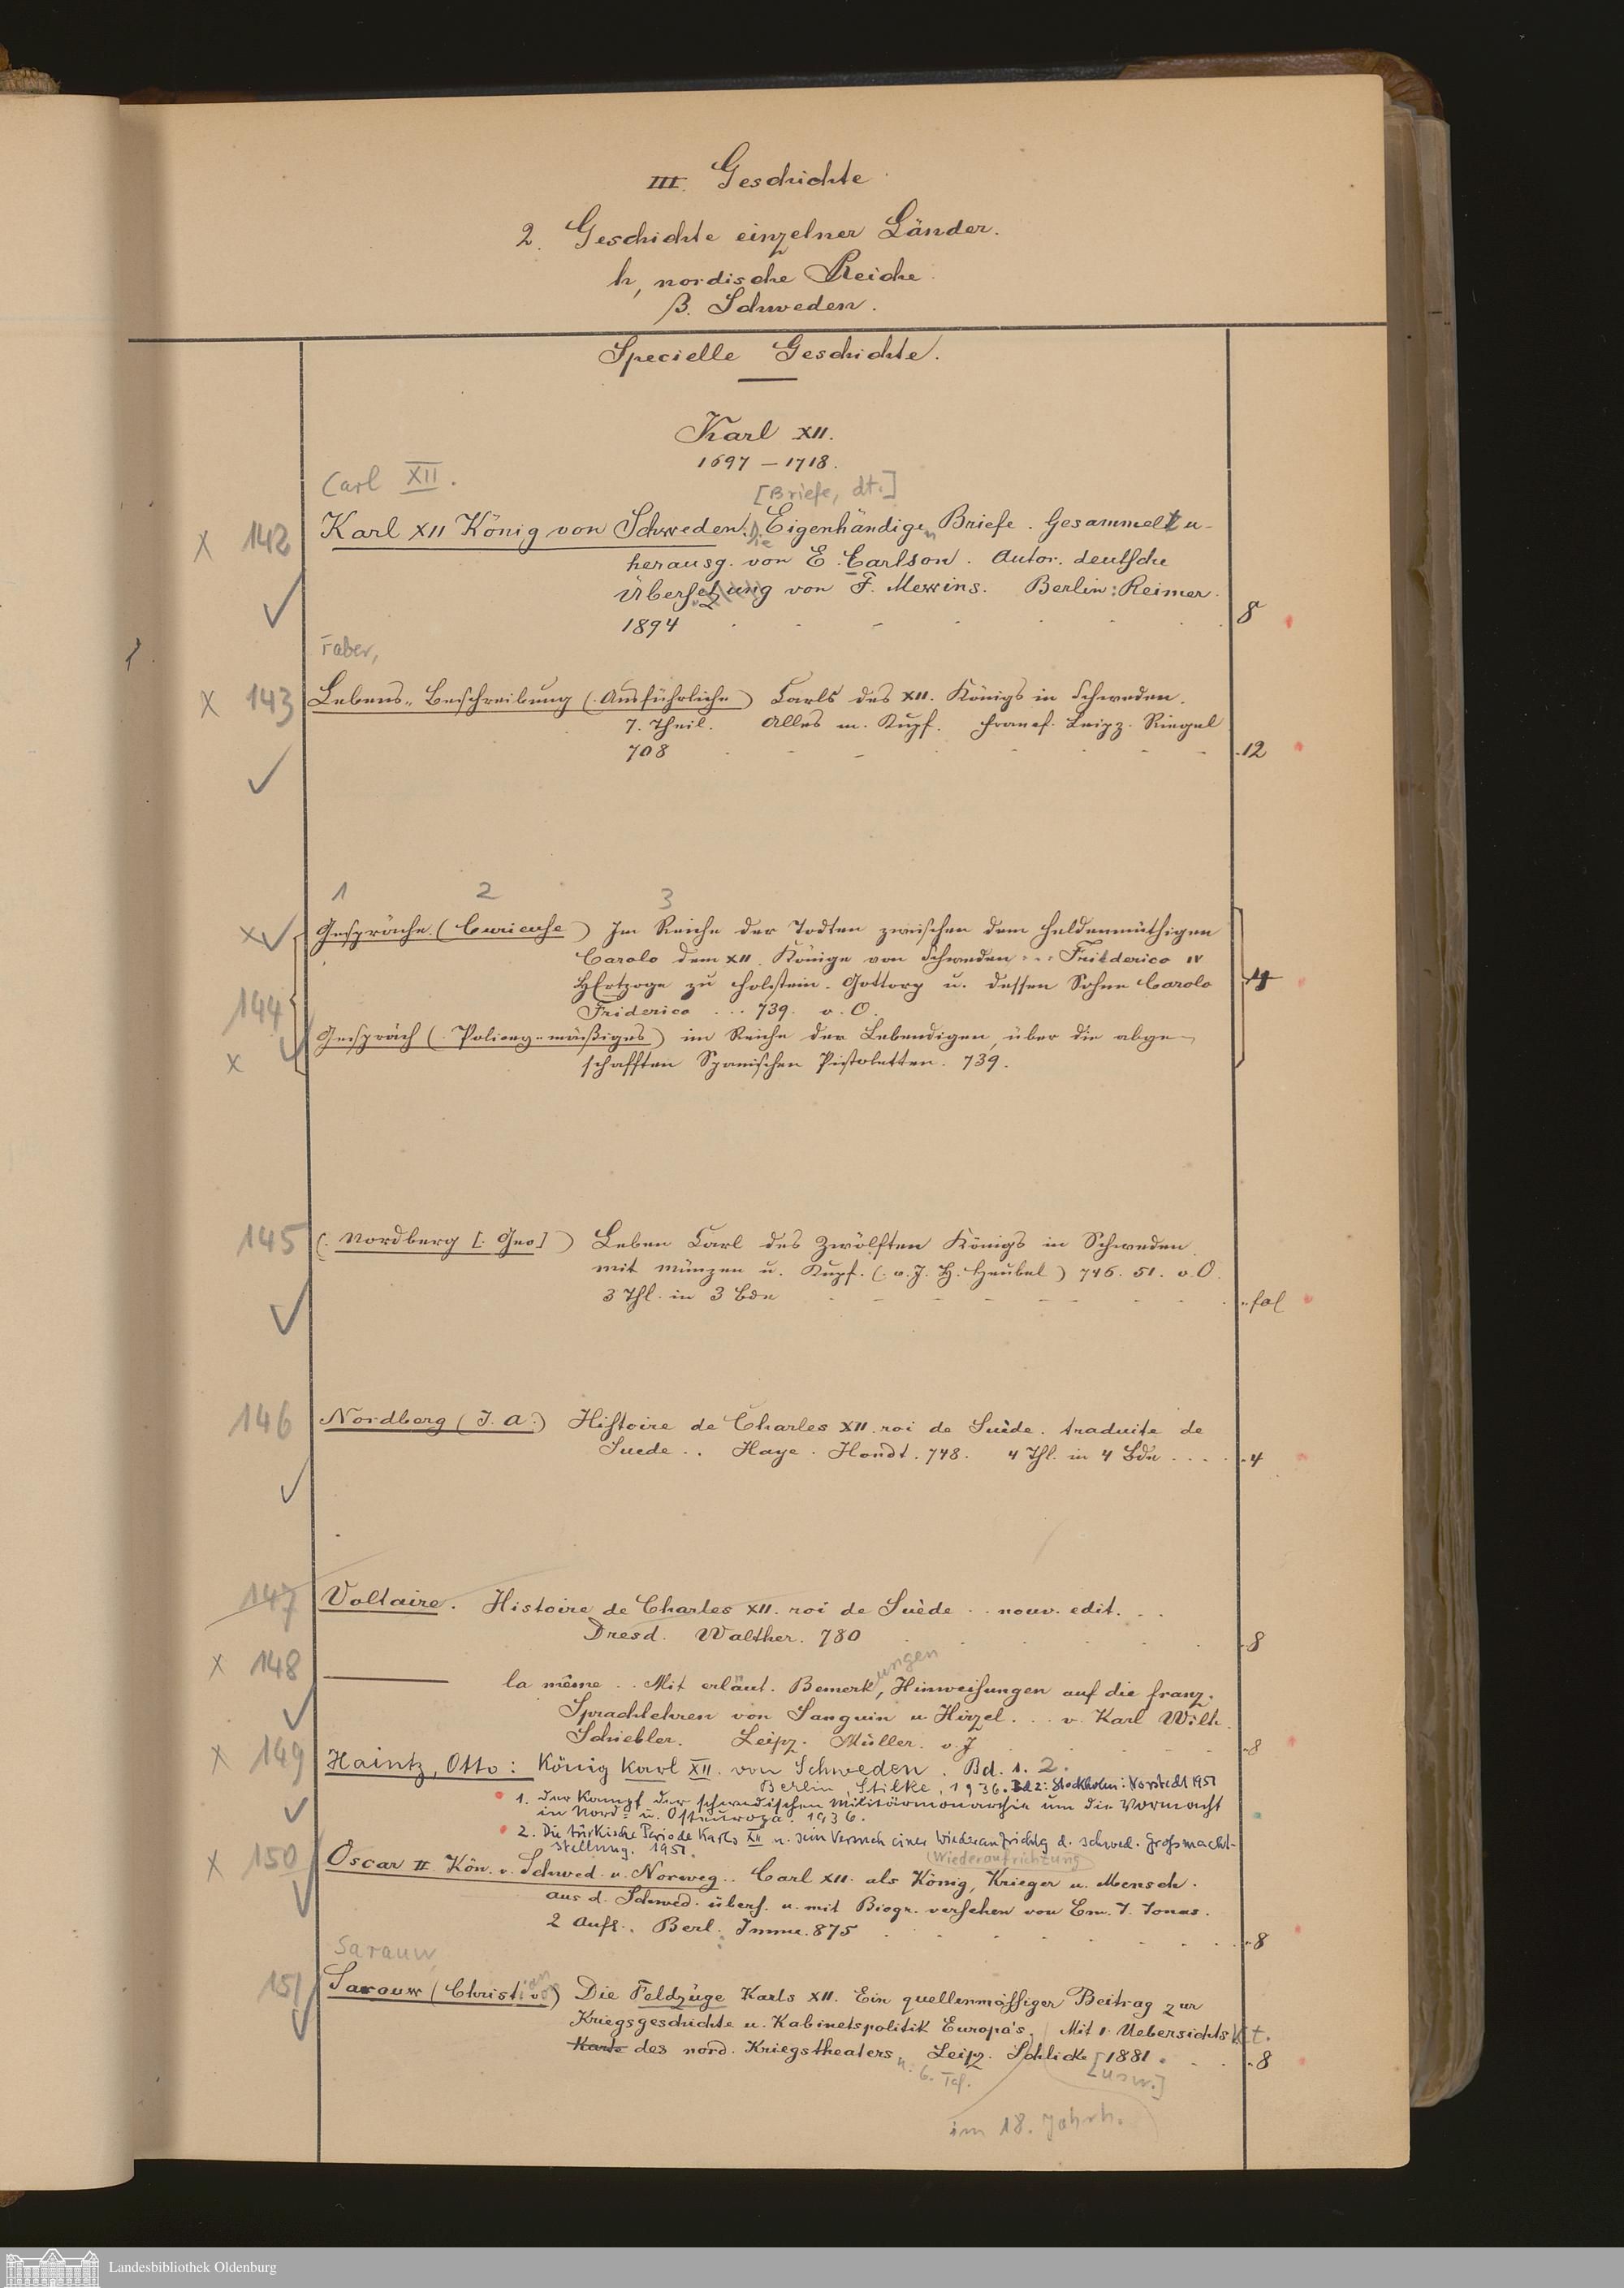 III. Geschichte
2. Geschichte einzelner Länder.
h, nordische Reiche
β. Schweden.
Specielle Geschichte.
Karl XII.
1697 – 1718.
Carl XII.
[Briefe, dt.]
x 142 Karl XII König von Schweden: Die Eigenhändigen Briefe. Gesammelt u.
herausg. von E. Carlson. Autor. deutsche
Übersetzung von F. Mewins. Berlin: Reimer.
1894 8
Faber,
x 143 Lebens-Beschreibung (Ausführliche) Carls des XII. Königs in Schweden.
7. Theil. Alles m. Kupf. Francf. Leipz. Riegel
708 12
1 2 3
x Gespräche (Curieuse) Im Reiche der Todten zwischen dem heldenmüthigen
Carolo dem XII. Könige von Schweden ... Friederico IV
HErtzoge zu Holstein-Gottorp u. dessen Sohne Carolo
Friderico ... 739. o. O.
144 4
x Gespräch (Policey-mäßiges) im Reiche der Lebendigen, über die abge-
schafften Spanischen Pistoletten. 739.
145 (Nordberg [Geo]) Leben Carl des Zwölften Königs in Schweden
mit Münzen u. Kupf. (v. J. H. Heubel) 746. 51. o. O.
3 Thl. in 3 Bdn fol
146 Nordberg (J. A.) Histoire de Charles XII. roi de Suède. traduite de
Suede .. Haye. Hondt. 748. 4 Thl. in 4 Bdn ... 4
147 Voltaire. Histoire de Charles XII. roi de Suède .. nouv. edit. ..
Dresd. Walther. 780 8
x 148 la même .. Mit erläut. Bemerkungen, Hinweisungen auf die franz.
Sprachlehren von Sanguin u. Hirzel ... v. Karl Wilh.
Schiebler. Leipz. Müller. o. J. 8
x 149 Haintz, Otto: König Karl XII. von Schweden. Bd. 1. 2.
Berlin, Stilke, 1936. Bd 2: Stockholm: Norstedt 1951
1. Der Kampf der schwedischen Militärmonarchie um die Vormacht
in Nord- u. Osteuropa. 1936.
2. Die türkische Periode Karls XII u. sein Versuch einer Wiederaufrichtg d. schwed. Großmacht-
stellung. 1951.
(Wiederaufrichtung)
x 150 Oscar II Kön. v. Schwed. u. Norweg.. Carl XII. als König, Krieger u. Mensch.
aus d. Schwed. übers. u. mit Biogr. versehen von Em. J. Jonas.
2 Aufl. Berl. Imme. 875 8
Sarauw,
151 Sarauw (Christian v.) Die Feldzüge Karls XII. Ein quellenmässiger Beitrag zur
Kriegsgeschichte u. Kabinetspolitik Europa's. Mit 1 Uebersichts Kt.
Karte des nord. Kriegstheaters. Leipz. Schlicke [1881. 8
u. 6. Taf. [usw.]
im 18. Jahrh.
Landesbibliothek Oldenburg